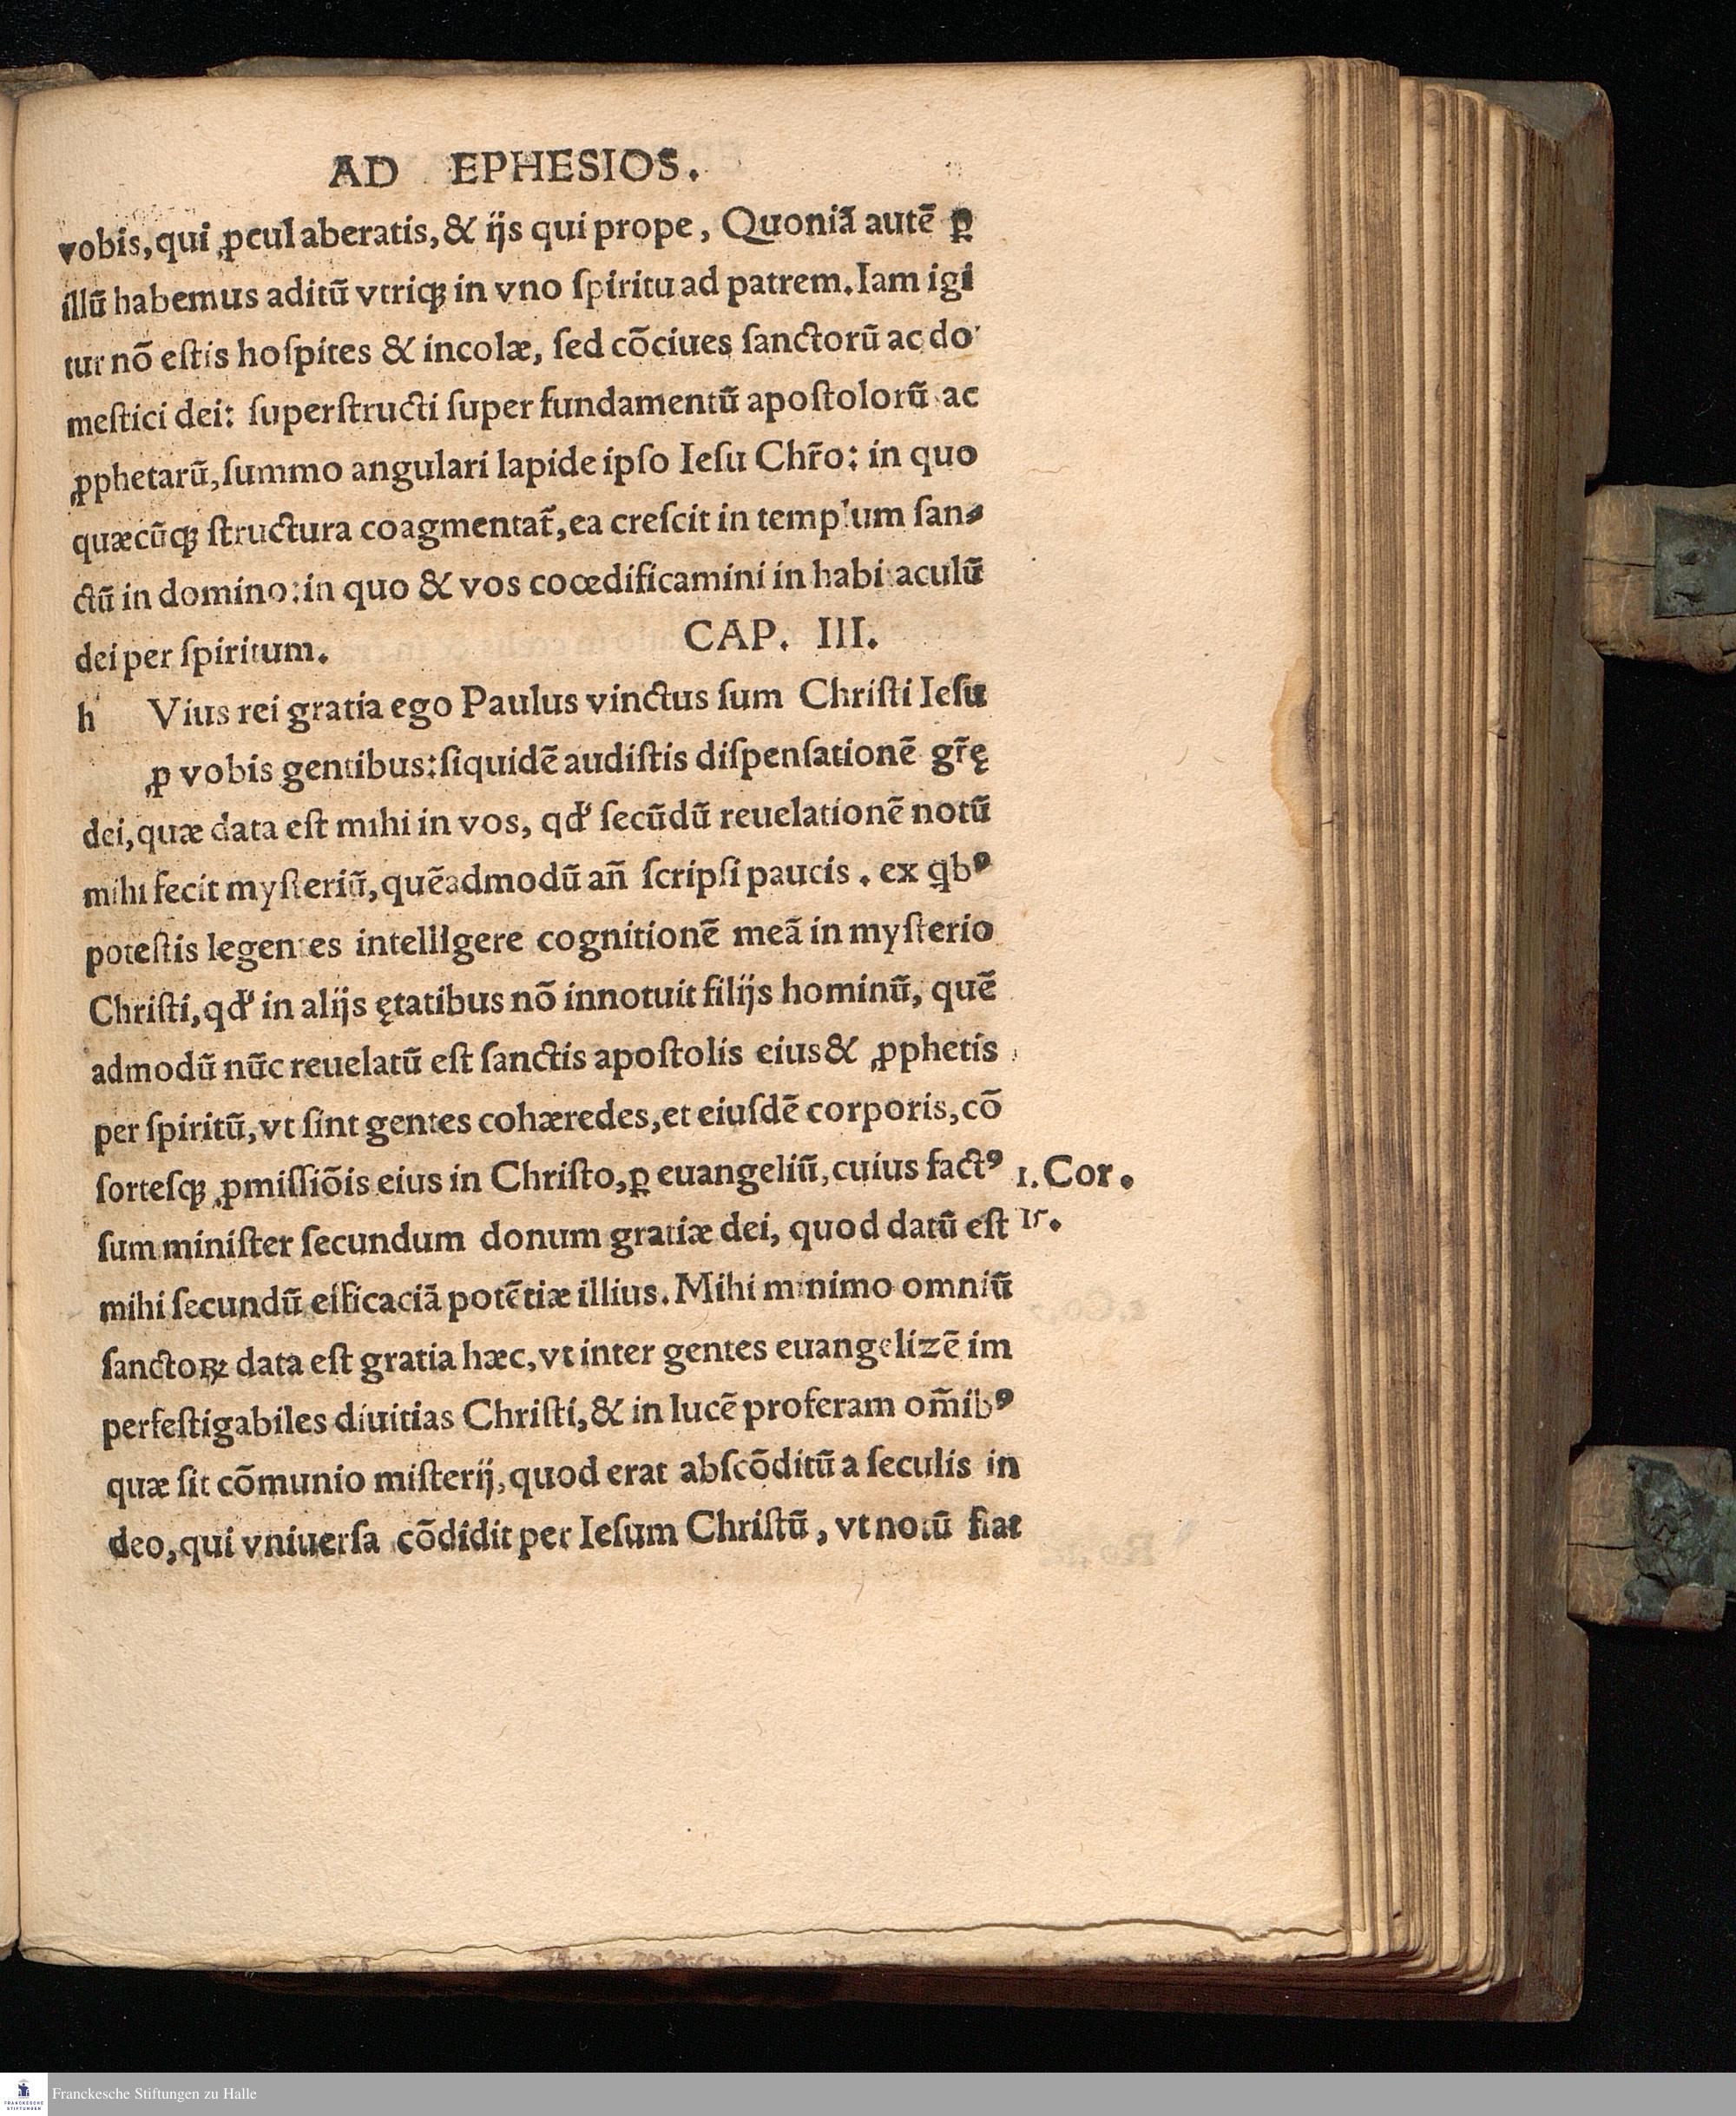 AD EPHESIOS.
vobis, qui ꝓcul aberatis, & ijs qui prope, Quoniã autẽ ꝑ
illũ habemus aditũ vtriqꝫ in vno ſpiritu ad patrem. Iam igi
tur nõ eſtis hoſpites & incolæ, ſed cõciues ſanctorũ ac do
meſtici dei: ſuperſtructi ſuper fundamentũ apoſtolorũ ac
ꝓphetarũ, ſummo angulari lapide ipſo Ieſu Chr̃o: in quo
quæcũqꝫ ſtructura coagmentat̃, ea creſcit in templum ſan-
ctũ in domino: in quo & vos coœdificamini in habitaculũ
dei per ſpiritum. CAP. III.
h Vius rei gratia ego Paulus vinctus ſum Chriſti Ieſu
ꝓ vobis gentibus: ſiquidẽ audiſtis diſpenſationẽ gr̃ę
dei, quæ data eſt mihi in vos, qđ ſecũdũ reuelationẽ notũ
mihi fecit myſteriũ, quẽadmodũ añ ſcripſi paucis. ex q̃bꝰ
poteſtis legentes intellIgere cognitionẽ meã in myſterio
Chriſti, qđ in alijs ętatibus nõ innotuit filijs hominũ, quẽ
admodũ nũc reuelatũ eſt ſanctis apoſtolis eius & ꝓphetis
per ſpiritũ, vt ſint gentes cohæredes, et eiuſdẽ corporis, cõ
ſorteſqꝫ ꝓmiſſiõis eius in Chriſto, ꝑ euangeliũ, cuius factꝰ
1. Cor.
ſum miniſter ſecundum donum gratiæ dei, quod datũ eſt
15.
mihi ſecundũ efficaciã potẽtiæ illius. Mihi minimo omniũ
ſanctoꝝ data eſt gratia hæc, vt inter gentes euangelizẽ im
perfeſtigabiles diuitias Chriſti, & in lucẽ proferam om̃ibꝰ
quæ ſit cõmunio miſterij, quod erat abſcõditũ a ſeculis in
deo, qui vniuerſa cõdidit per Ieſum Chriſtũ, vt notũ fiat
Franckesche Stiftungen zu Halle
FRANCKESCHE
STIFTUNGEN